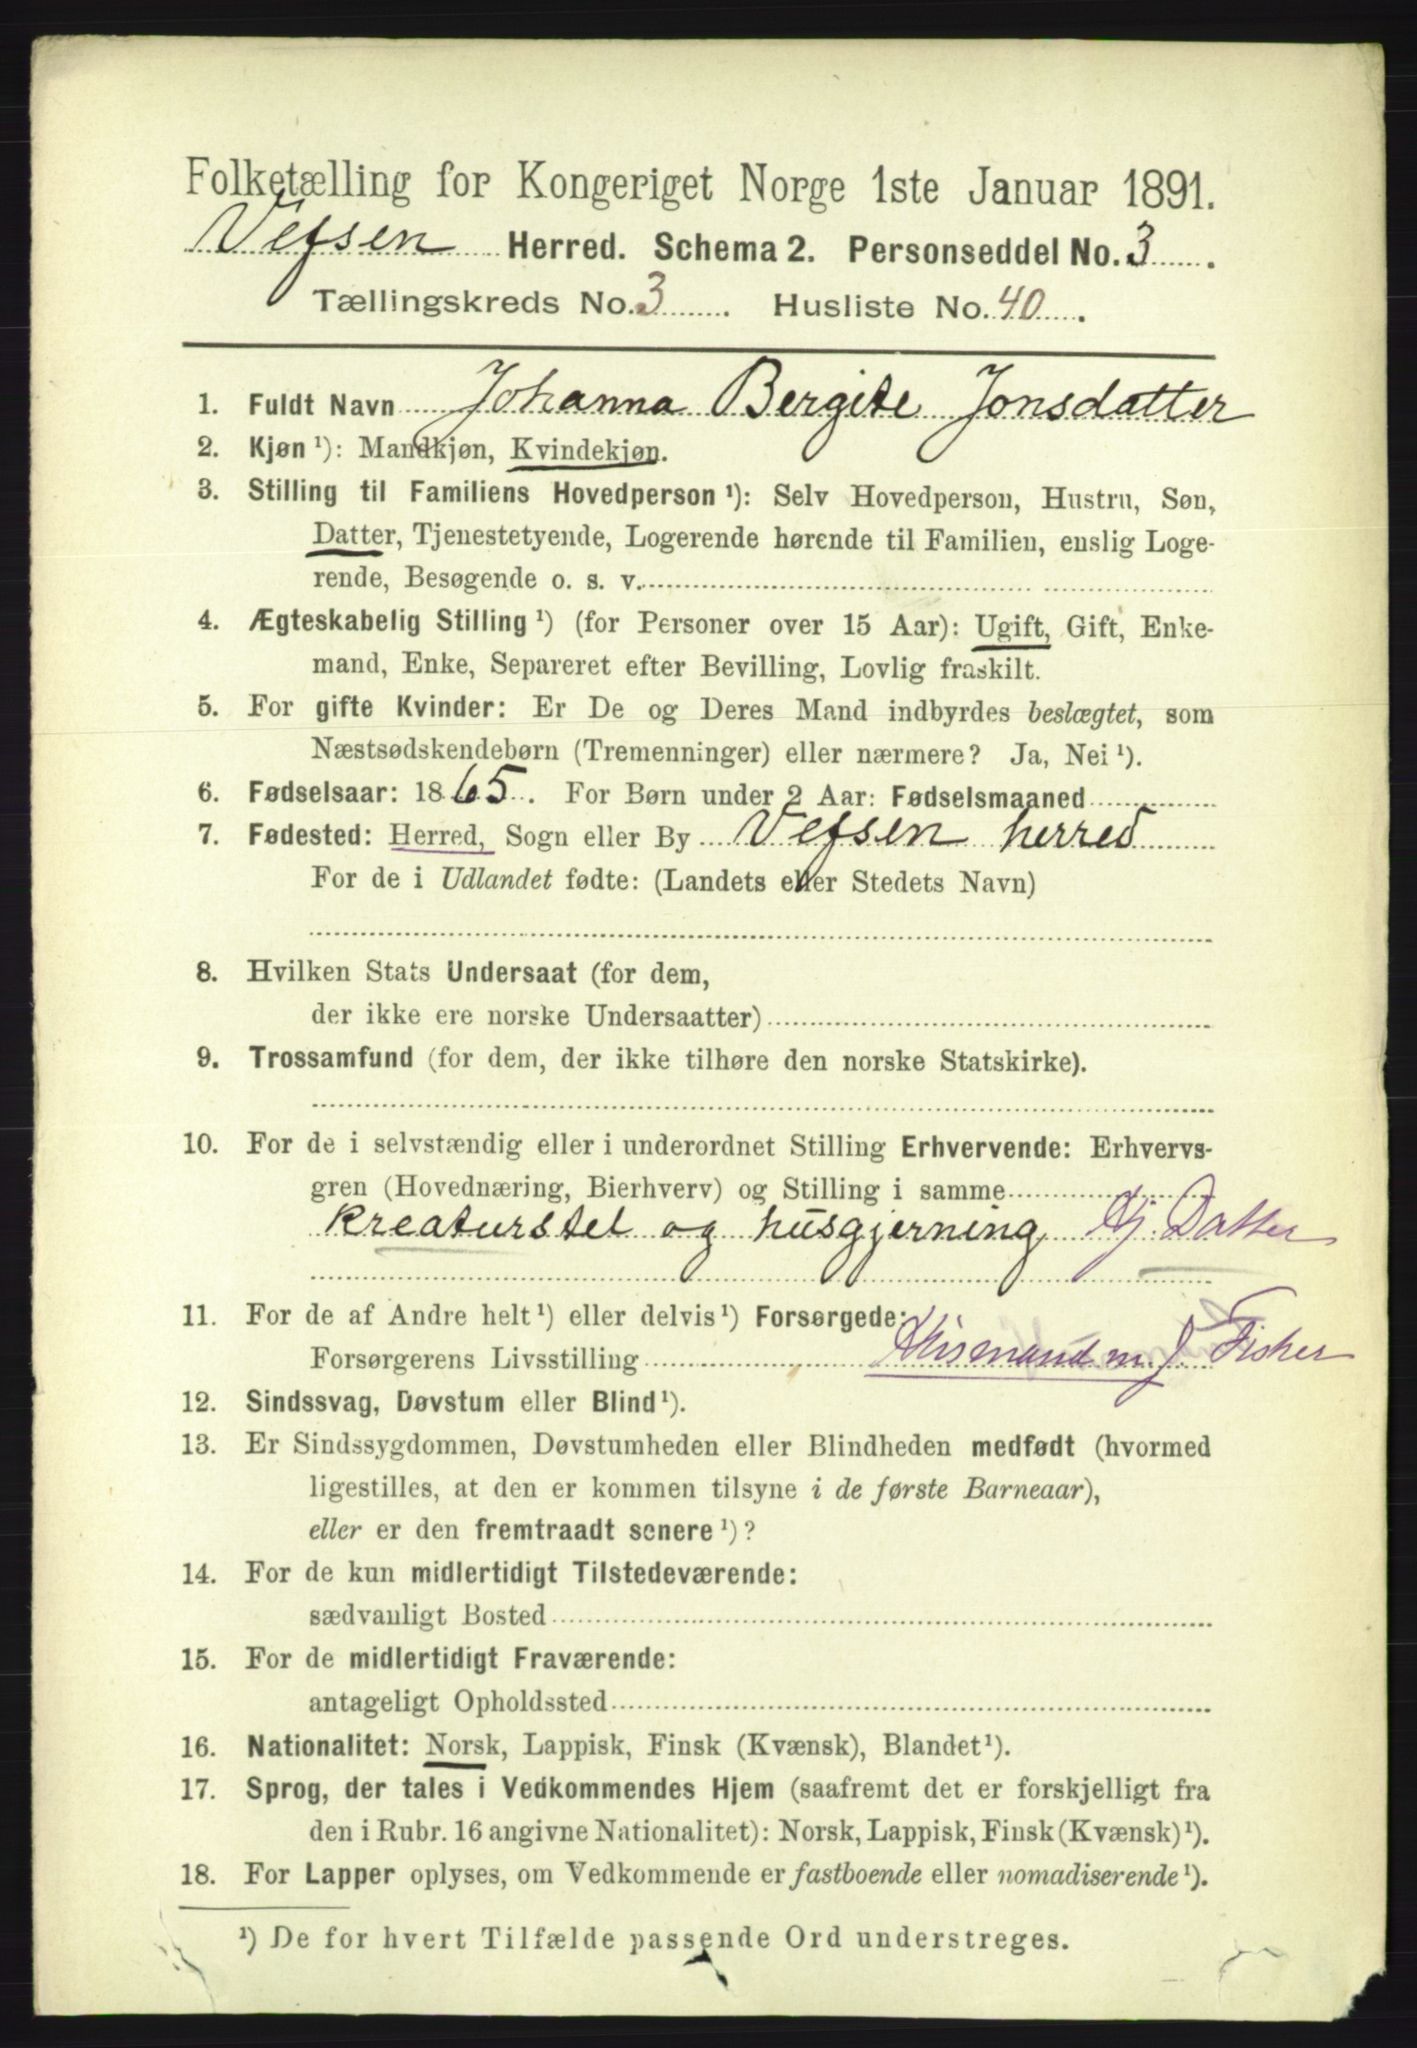 Folketælling for Kongeriget Norge 1ste Januar 1891.
Vefsen Herred. Schema 2. Personseddel No. 3.
Tællingskreds No. 3. Husliste No. 40.
1. Fuldt Navn Johanna Bergite Jonsdatter
2. Kjøn ¹): Mandkjøn, Kvindekjøn.
3. Stilling til Familiens Hovedperson ¹): Selv Hovedperson, Hustru, Søn,
Datter, Tjenestetyende, Logerende hørende til Familien, enslig Loge-
rende, Besøgende o. s. v.
4. Ægteskabelig Stilling ¹) (for Personer over 15 Aar): Ugift, Gift, Enke-
mand, Enke, Separeret efter Bevilling, Lovlig fraskilt.
5. For gifte Kvinder: Er De og Deres Mand indbyrdes beslægtet, som
Næstsødskendebørn (Tremenninger) eller nærmere? Ja, Nei ¹).
6. Fødselsaar: 1865. For Børn under 2 Aar: Fødselsmaaned
7. Fødested: Herred, Sogn eller By Vefsen herred
For de i Udlandet fødte: (Landets eller Stedets Navn)
8. Hvilken Stats Undersaat (for dem,
der ikke ere norske Undersaatter)
9. Trossamfund (for dem, der ikke tilhøre den norske Statskirke).
10. For de i selvstændig eller i underordnet Stilling Erhvervende: Erhvervs-
gren (Hovednæring, Bierhverv) og Stilling i samme
kreaturstel og husgjerning Hj. Datter
11. For de af Andre helt ¹) eller delvis ¹) Forsørgede:
Forsørgerens Livsstilling Husmand m. J. Fisker
12. Sindssvag, Døvstum eller Blind ¹).
13. Er Sindssygdommen, Døvstumheden eller Blindheden medfødt (hvormed
ligestilles, at den er kommen tilsyne i de første Barneaar),
eller er den fremtraadt senere ¹)?
14. For de kun midlertidigt Tilstedeværende:
sædvanligt Bosted
15. For de midlertidigt Fraværende:
antageligt Opholdssted
16. Nationalitet: Norsk, Lappisk, Finsk (Kvænsk), Blandet ¹).
17. Sprog, der tales i Vedkommendes Hjem (saafremt det er forskjelligt fra
den i Rubr. 16 angivne Nationalitet): Norsk, Lappisk, Finsk (Kvænsk) ¹).
18. For Lapper oplyses, om Vedkommende er fastboende eller nomadiserende ¹).
¹) De for hvert Tilfælde passende Ord understreges.